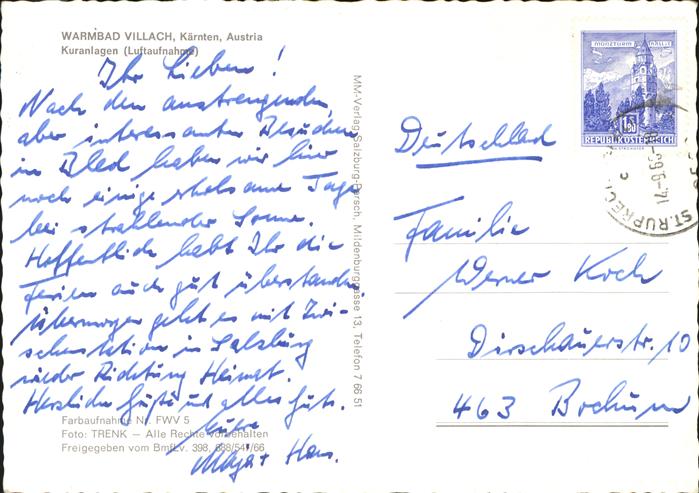 WARMBAD VILLACH, Kärnten, Austria
Kuranlagen (Luftaufnahme)
Ihr Lieben!
Nach den anstrengenden,
aber interessanten Besuchen
in Bled haben wir hier
noch einige erholsame Tage
bei strahlender Sonne.
Hoffentlich habt Ihr die
Ferien auch gut überstanden.
Übermorgen geht es mit Zwi-
schenstation in Salzburg
wieder Richtung Heimat.
Herzliche Grüße und alles Gute.
Eure
Maja + Hans.
Farbaufnahme Nr. FWV 5
Foto: TRENK — Alle Rechte vorbehalten
Freigegeben vom BmfLv. 398, 688/541/66
MM-Verlag Salzburg-Parsch, Mildenburggasse 13, Telefon 7 66 51
MÜNZTURM HALL i. T.
1.50
REPUBLIK ÖSTERREICH
ST. RUPRECHT
14.-9.69-18
c
Deutschland
Familie
Werner Koch
Dirschauerstr. 10
463 Bochum